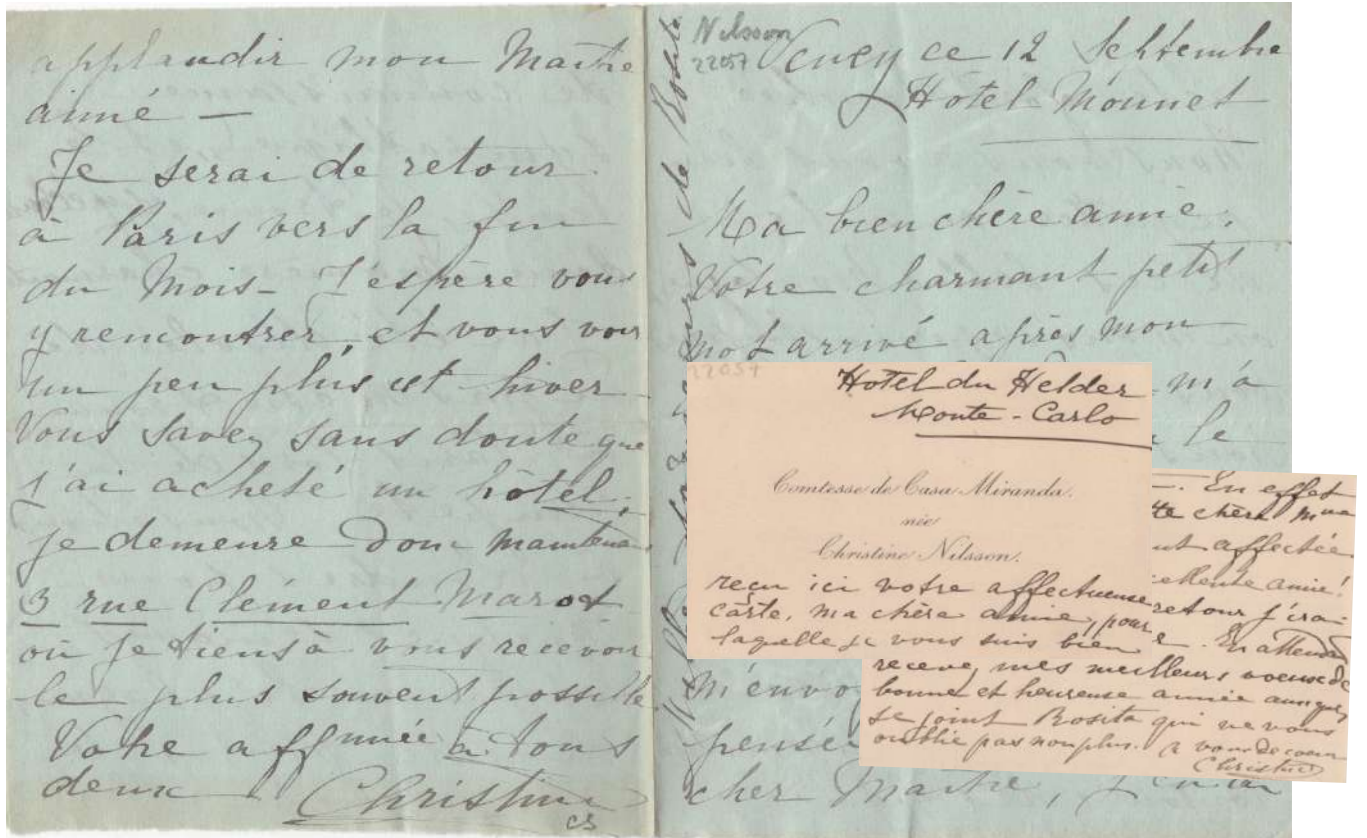 applaudir mon Maître
aimé —
Je serai de retour
à Paris vers la fin
du Mois - J'espère vous
y rencontrer, et vous voir
un peu plus cet hiver -
Vous savez sans doute que
j'ai acheté un hôtel,
je demeure donc maintenant
3 rue Clément Marot
où je tiens à vous recevoir
le plus souvent possible
Votre affnnée à tous
deux Christine
Nilsson
22057
Vevey ce 12 Septembre
Hôtel Mounet
Ma bien chère amie,
Votre charmant petit
mot arrivé après mon
m'a
le
m'envo
pensé
cher Maître, j'
de Rosita
22057
Hotel du Helder
Monte-Carlo
Comtesse de Casa Miranda.
née
Christine Nilsson.
reçu ici votre affectueuse
carte, ma chère amie, pour
laquelle je vous suis bien
En effet
chère
affectée
cellente amie!
retour j'irai
. En attendant
recevez mes meilleurs voeux de
bonne et heureuse année auxquels
se joint Rosita qui ne vous
oublie pas non plus. à vous de coeur
Christine